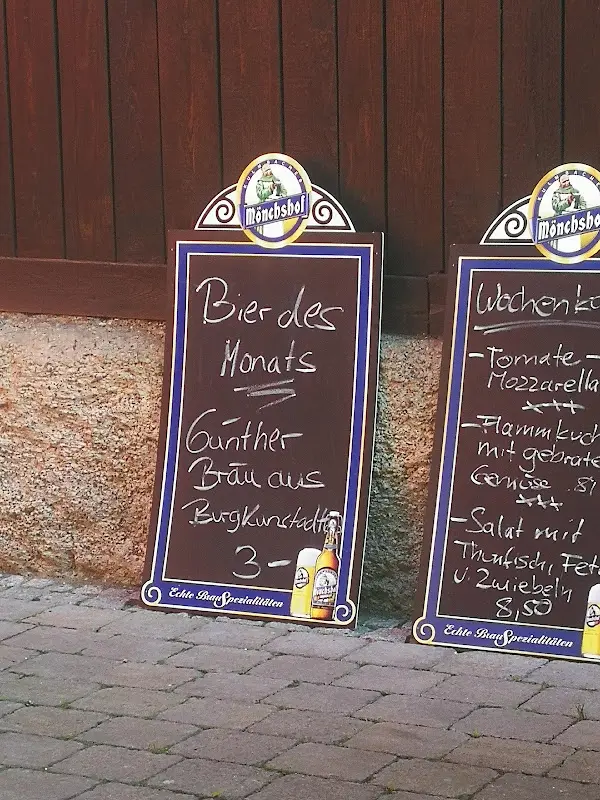 KULMBACHER
Mönchshof
Bier des
Monats
Günther
Bräu aus
Burgkunstadt
3,-
Echte BrauSpezialitäten
KULMBACHER
Mönchsho
Wochenka
- Tomate -
Mozzarella
- Flammkuch
mit gebrate
Gemüse
- Salat mit
Thunfisch, Fet
u. Zwiebeln
8,50
Echte BrauSpezialitäten